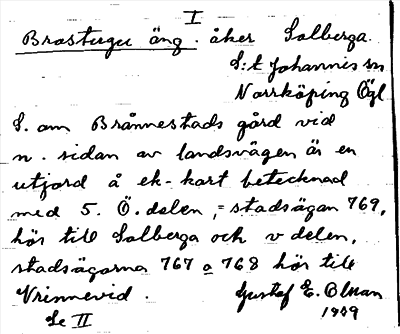 I
Brostugu äng. åker Solberga.
S:t Johannis sn
Norrköping Ögl
S. om Brånnestads gård vid
n. sidan av landsvägen är en
utjord å ek-kart betecknad
med 5. Ö. delen, = stadsägan 769,
hör till Solberga och v delen,
stadsägorna 767 o 768 hör till
Vrinnevid.
Gustaf E. Olsson
Se II
1949